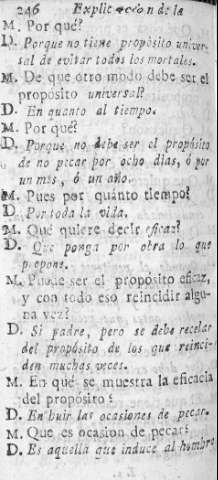 246 Explicacion de la
M. Por qué?
D. Porque no tiene propósito univer-
sal de evitar todos los mortales.
M. De que otro modo debe ser el
propósito universal?
D. En quanto al tiempo.
M. Por qué?
D. Porque no debe ser el propósito
de no pecar por ocho dias, ó por
un mes, ó un año.
M. Pues por quánto tiempo?
D. Por toda la vida.
M. Qué quiere decir eficaz?
D. Que ponga por obra lo que
propone.
M. Puede ser el propósito eficaz,
y con todo eso reincidir algu-
na vez?
D. Si padre, pero se debe recelar
del propósito de los que reinci-
den muchas veces.
M. En qué se muestra la eficacia
del propósito?
D. En huir las ocasiones de pecar.
M. Que es ocasion de pecar?
D. Es aquella que induce al hombre